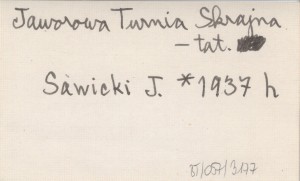 Jaworowa Turnia Skrajna
– tat.
Sawicki J. * 1937 h